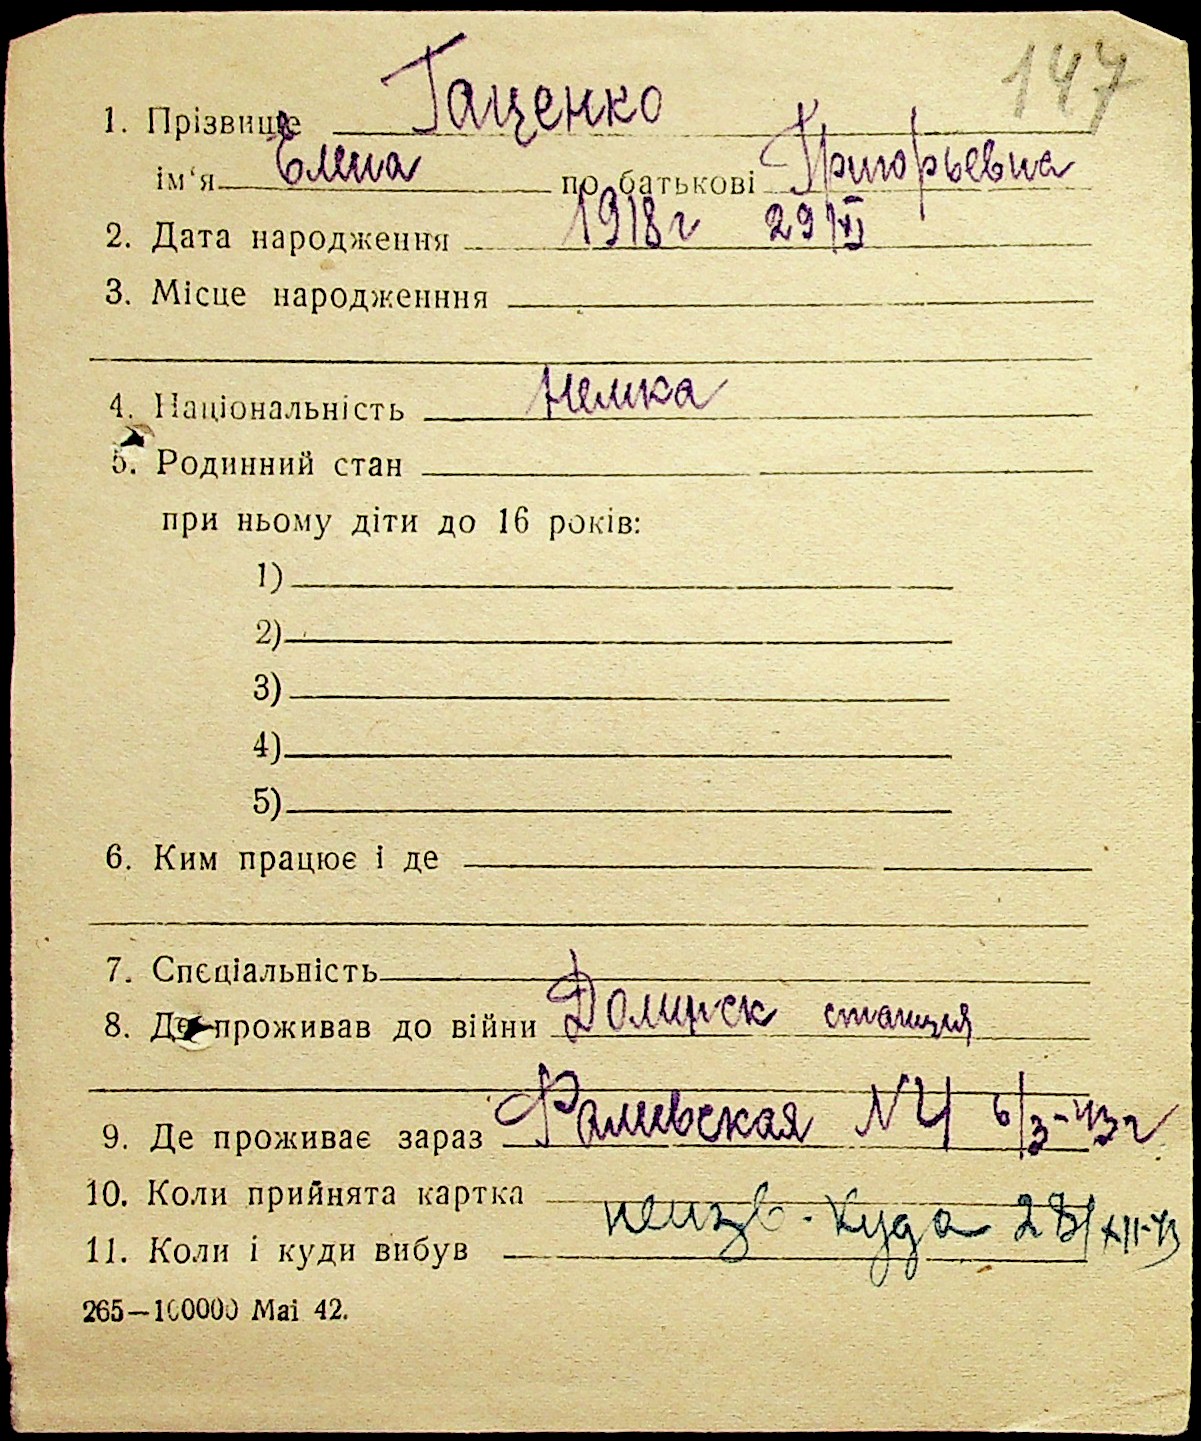 147
1. Прізвище Гаценко
ім‘я Елена по батькові Григорьевна
2. Дата народження 1918г 29/VI
3. Місце народженння
4. Національність немка
5. Родинний стан
при ньому діти до 16 років:
1)
2)
3)
4)
5)
6. Ким працює і де
7. Спєціальність
8. Де проживав до війни Долинск станция
9. Де проживає зараз Фалиевская № 4 6/3-43г
10. Коли прийнята картка
неизв. куда 28/XII-43
11. Коли і куди вибув
265—100000 Маі 42.